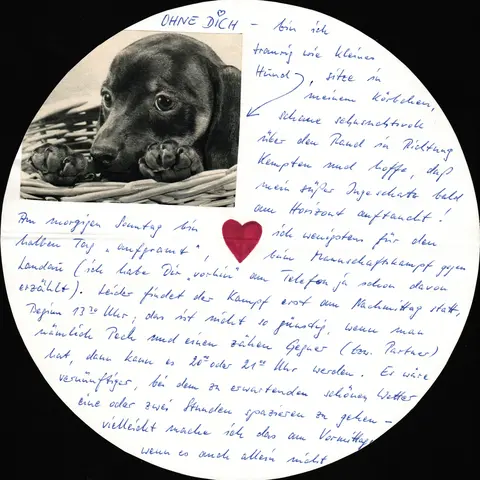 OHNE DICH – bin ich
traurig wie kleines
Hund, sitze in
meinem Körbchen,
schaue sehnsuchtsvoll
über den Rand in Richtung
Kempten und hoffe, daß
mein süßer Ingeschatz bald
am Horizont auftaucht!
Am morgigen Sonntag bin ich wenigstens für den
halben Tag „aufgeramt“, beim Mannschaftskampf gegen
Landau (ich habe Dir „vorhin“ am Telefon ja schon davon
erzählt). Leider findet der Kampf erst am Nachmittag statt,
Beginn 13³⁰ Uhr; das ist nicht so günstig, wenn man
nämlich Pech und einen zähen Gegner (bzw. Partner)
hat, dann kann es 20⁰⁰ oder 21⁰⁰ Uhr werden. Es wäre
vernünftiger, bei dem zu erwartenden schönen Wetter
eine oder zwei Stunden spazieren zu gehen –
vielleicht mache ich das am Vormittag,
wenn es auch allein nicht